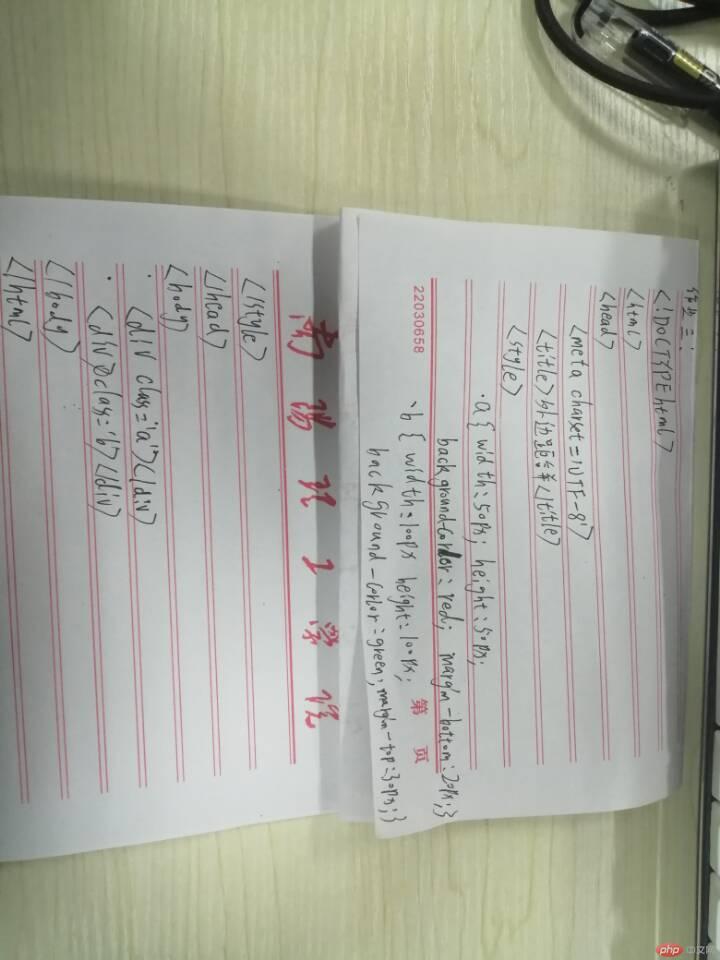 作业三:
<!DOCTYPE html>
<html>
<head>
<meta charset='UTF-8'>
<title>外边距合并</title>
<style>
.a{width:50px; height:50px;
background-corlor:red; margin-bottom:20px;}
.b{width:100px height:100px;
background-corlor:green; margin-top:30px;}
22030658
第 页
南 阳 理 工 学 院
</style>
</head>
<body>
<div class='a'></div>
<div class='b'></div>
</body>
</html>
php 中文网